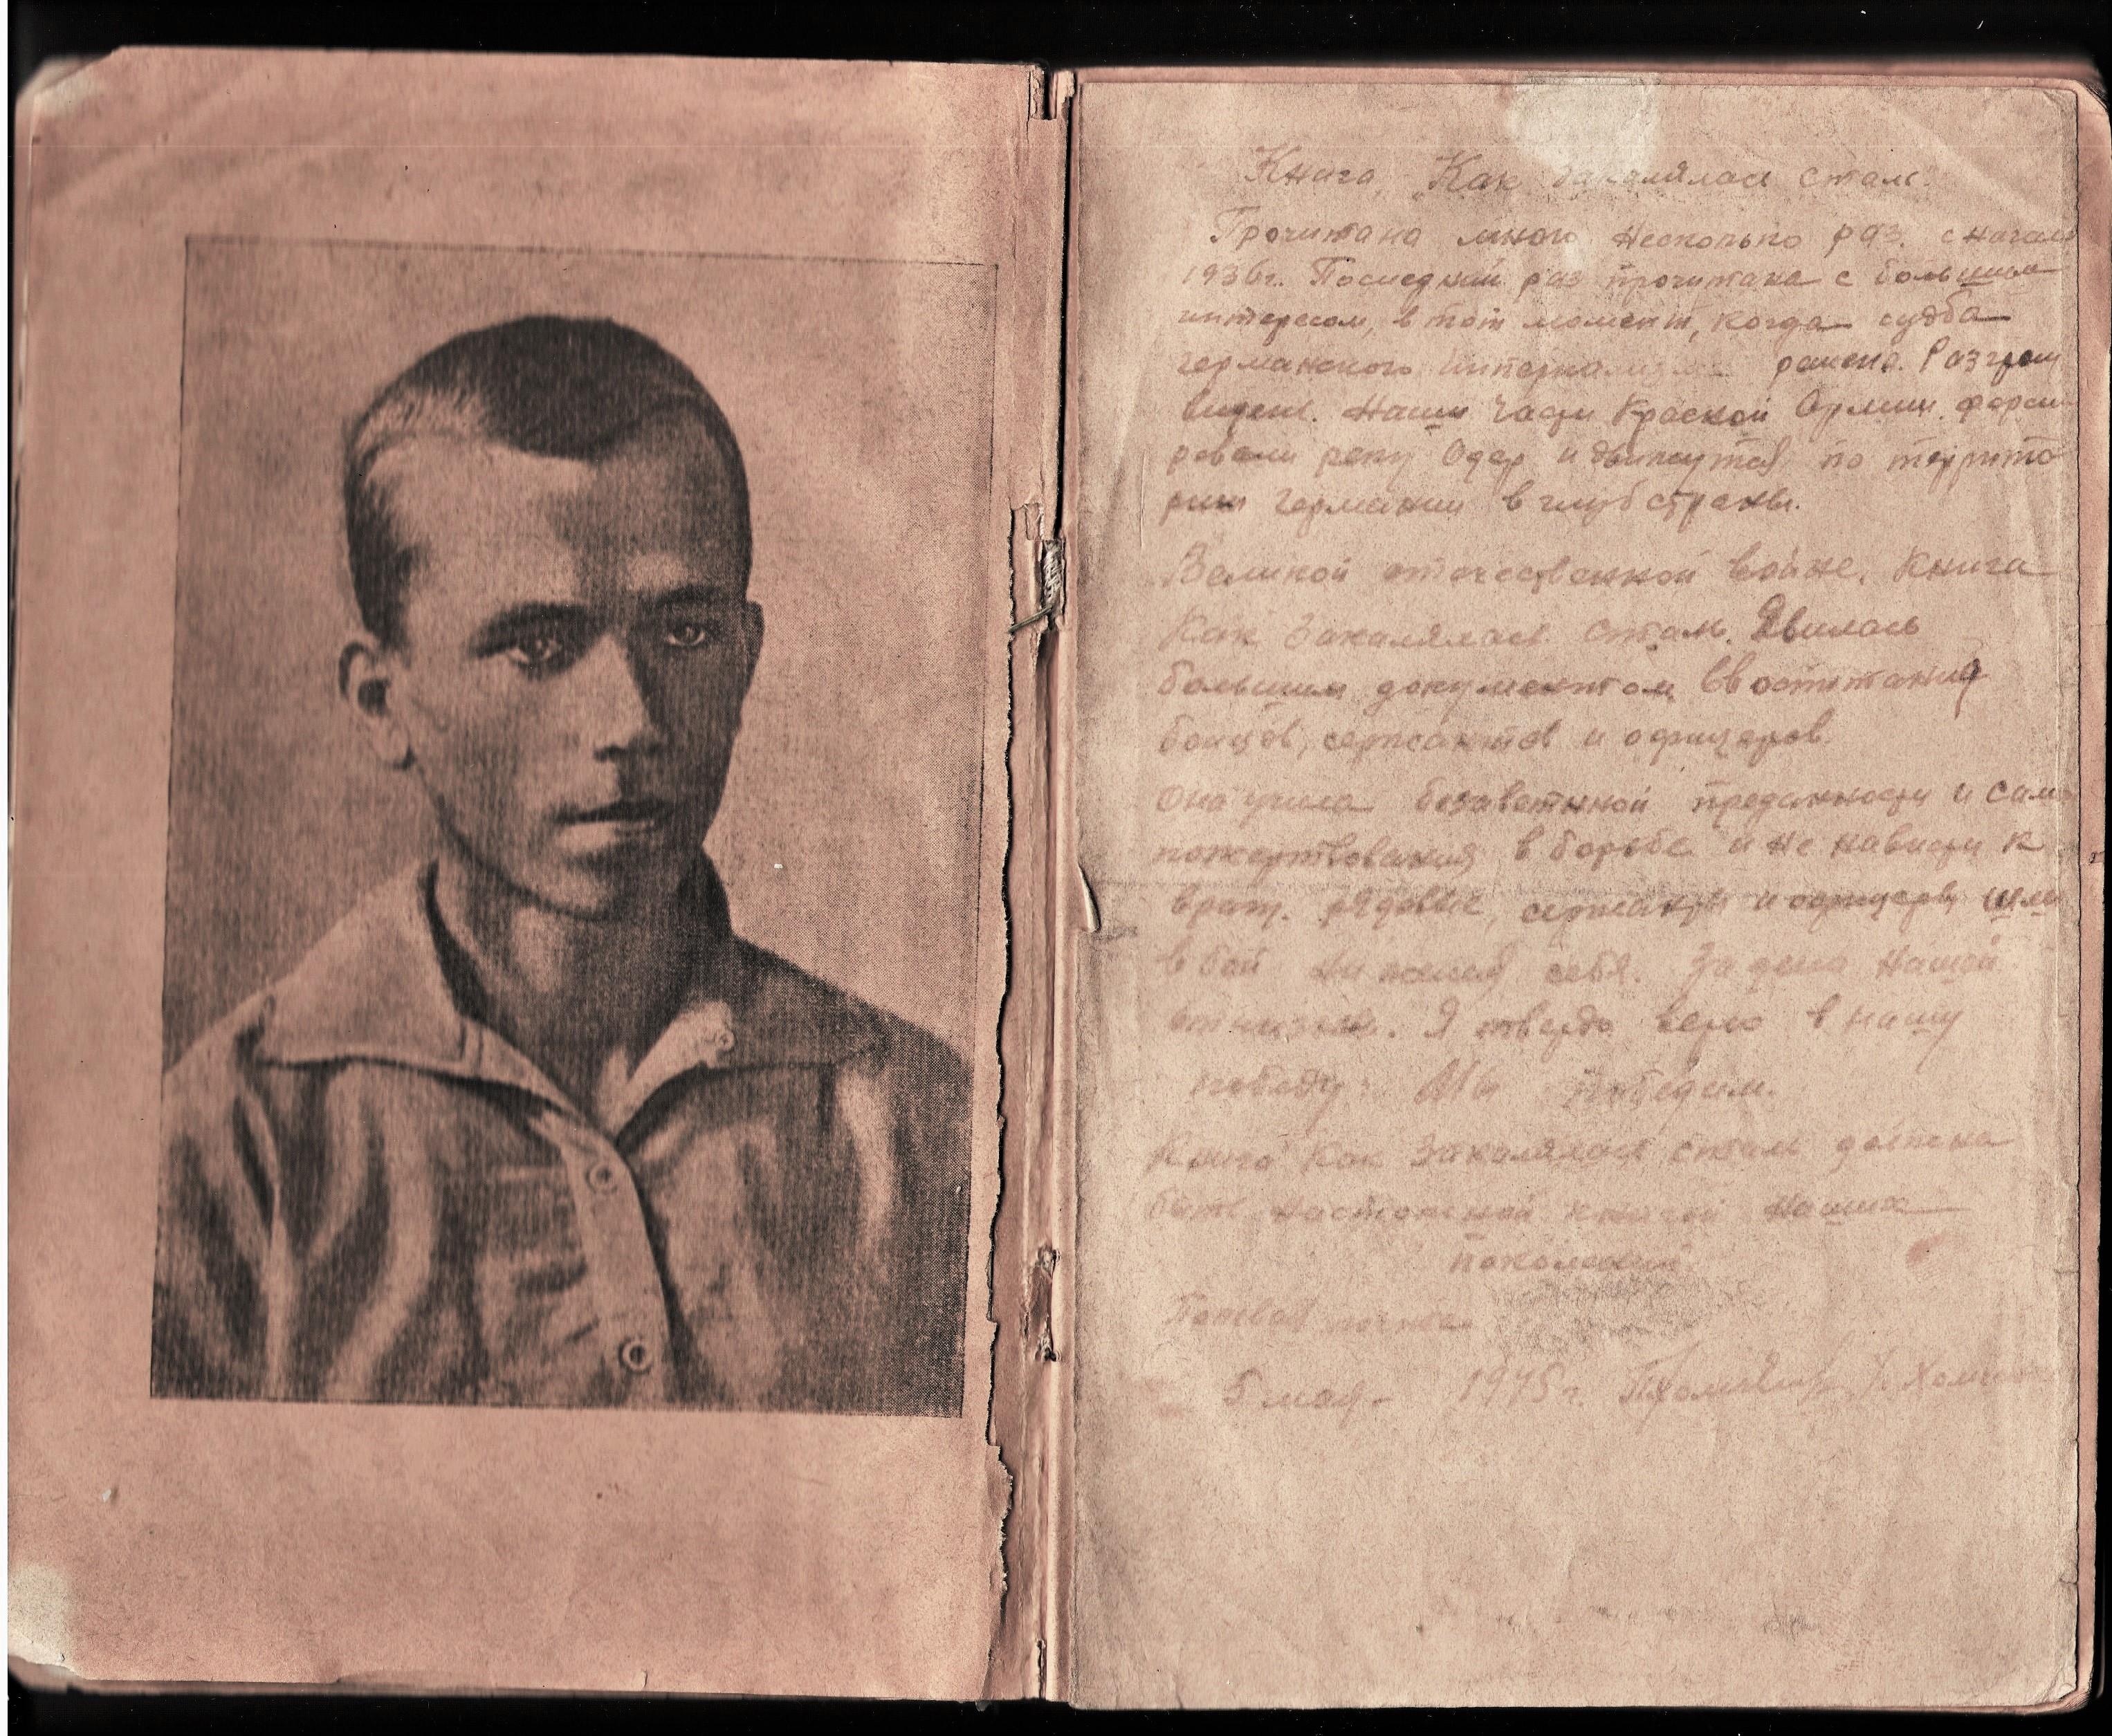 Книга „Как закалялась сталь.
Прочитана мною несколько раз. с начала
1936г. Последний раз прочитана с большим
интересом, в тот момент, когда судба
германского империализма решена. Разгром
виден. Наши части Красной Армии. форси-
ровали реку Одер и движутся по террито
рии Германии в глуб страны.
Великой отечественной войне. Книга
Как Закалялась сталь. Явилась
большим документом ввоспитания
бойцов, сержантов и офицеров.
Она учила безаветнной преданности и само
пожертвования в борьбе и не нависти к
врагу. рядовые, сержанты и офицеры шли
в бой ни жалея себя. За дела нашей
отчизны. Я твердо верю в нашу
победу. Мы победим.
Книга Как Закалялась сталь должна
быть настольной книгой наших
поколений.
Полевая почта
5 мая - 1945г.